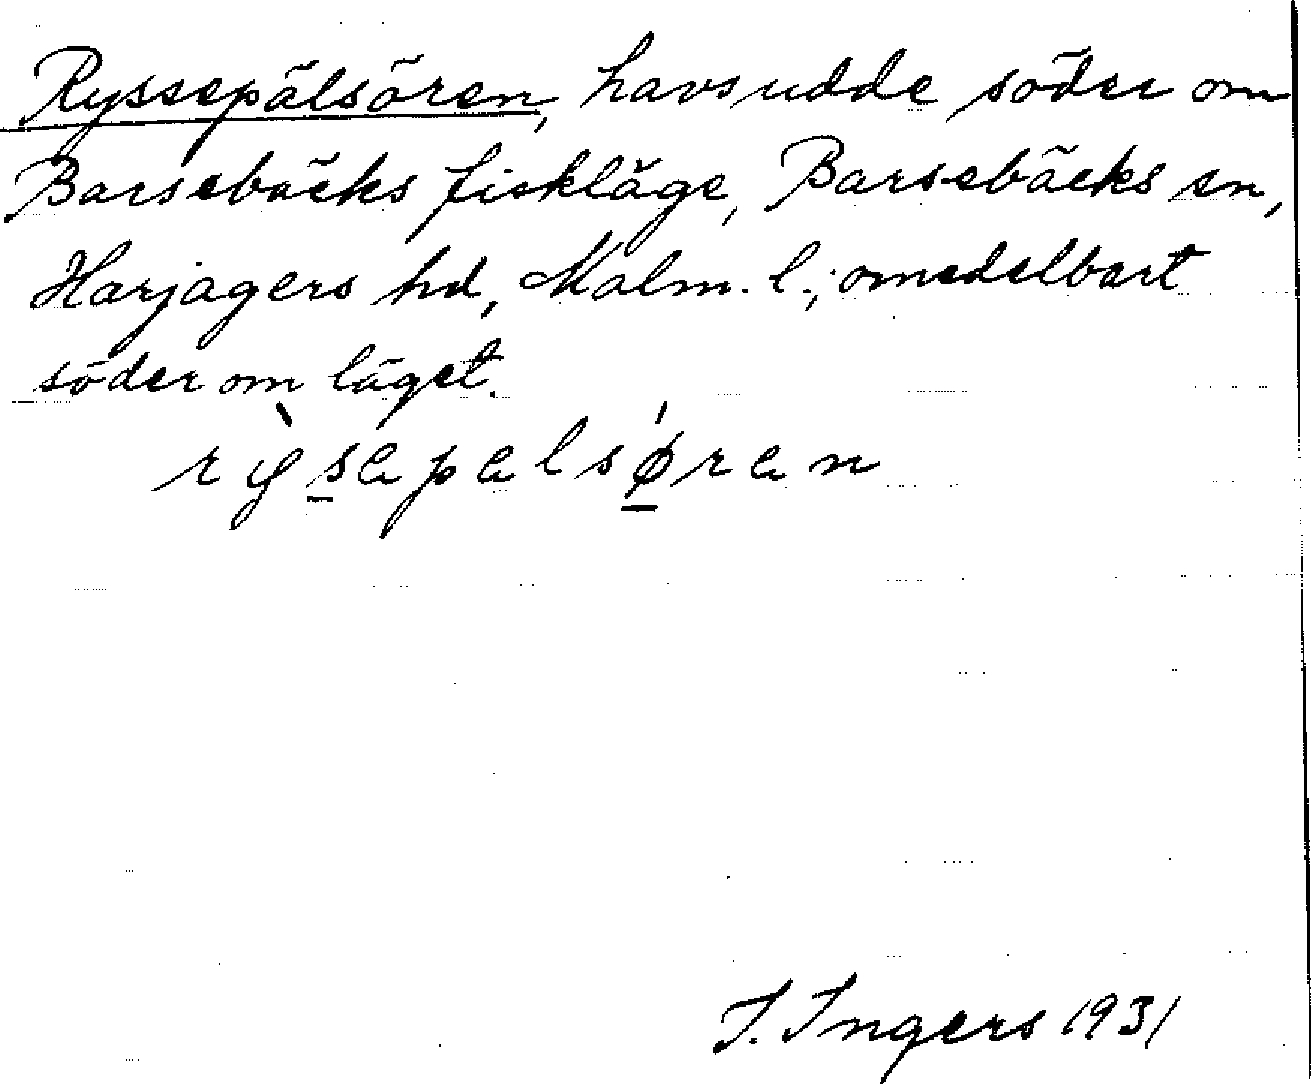 Ryssepålsören, havsudde söder om
Barsebäcks fiskläge, Barsebäcks sn,
Harjagers hd, Malm. l.; omedelbart
söder om läget.
rỳsepelsǿren
I. Ingers 1931